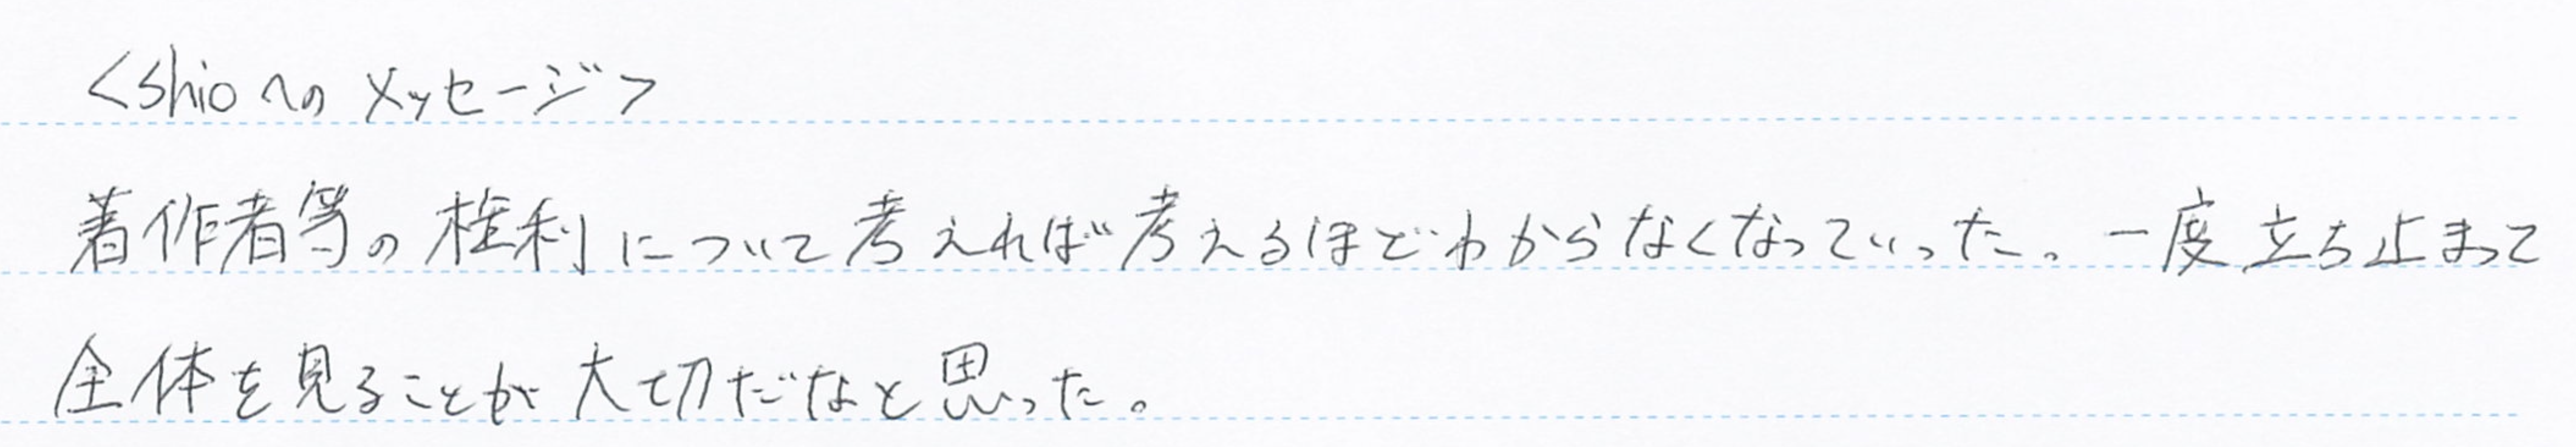 <shioへのメッセージ>
著作者等の権利について考えれば考えるほどわからなくなっていった。一度立ち止まって
全体を見ることが大切だなと思った。